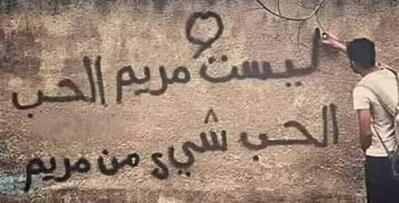 ليست مريم الحب
الحب شيء من مريم